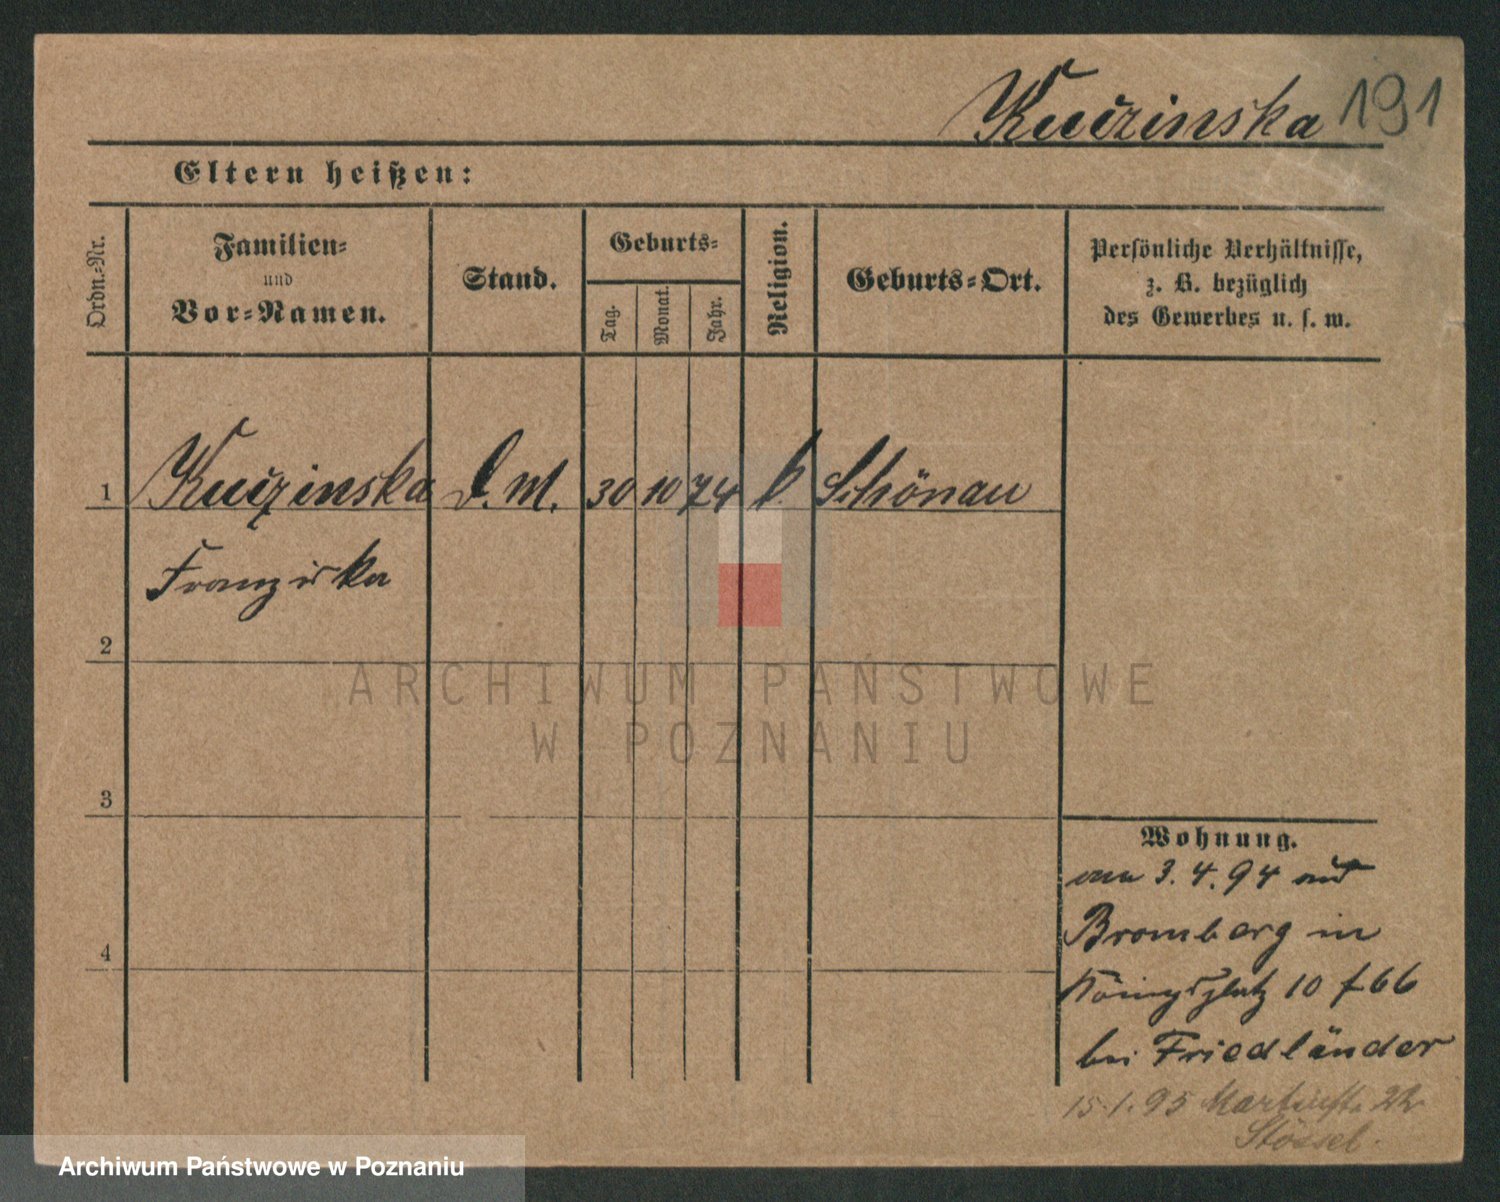 Kuczinska 191
Eltern heißen:
Ordn.-Nr.
Familien-
und
Vor-Namen.
Stand.
Geburts-
Tag.
Monat.
Jahr.
Religion.
Geburts-Ort.
Persönliche Verhältnisse,
z. B. bezüglich
des Gewerbes u. s. w.
1 Kuczinska D. M. 30 10 74 k Schönau
Franziska
2
ARCHIWUM PAŃSTWOWE
W POZNANIU
3
4
Wohnung.
am 3. 4. 94 aus
Bromberg in
Königsplatz 10 f 66
bei Friedländer
15. 1. 95 Martinstr. 22
Stössel.
Archiwum Państwowe w Poznaniu